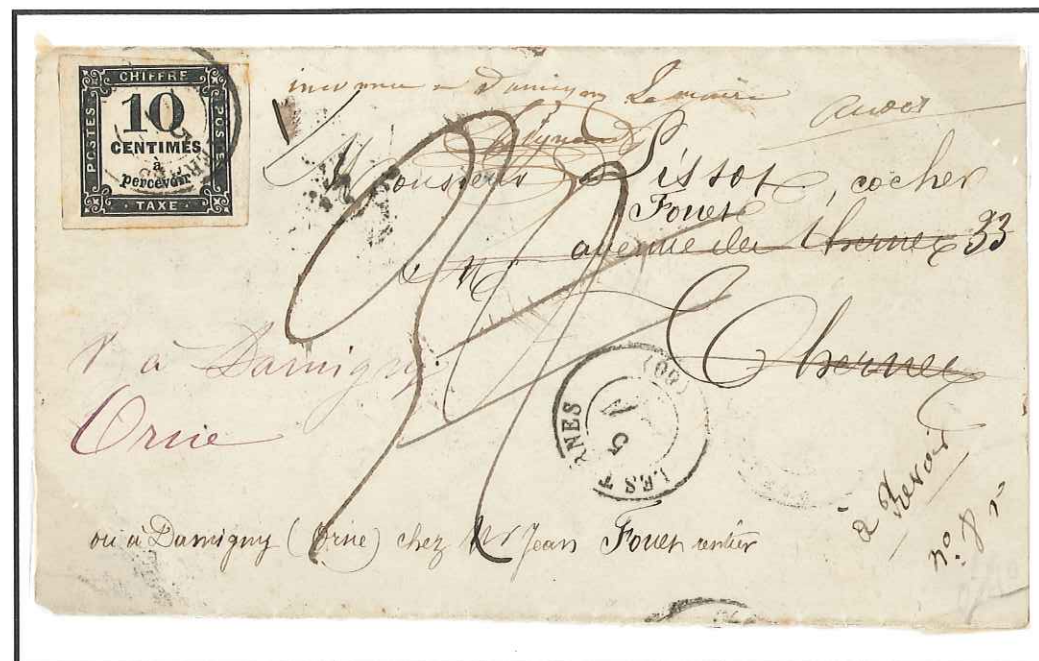 CHIFFRE
POSTES
POSTES
10
CENTIMES
à
percevoir
TAXE
inconnu a Damigny Le maire
Monsieur Pissot, cocher
Fouet
avenue des Thernes 33
Thernes
à Damigny
Orne
LES TERNES
(60)
5
a Revoir
no. 8
ou à Damigny (Orne) chez Mr Jean Fouet rentier